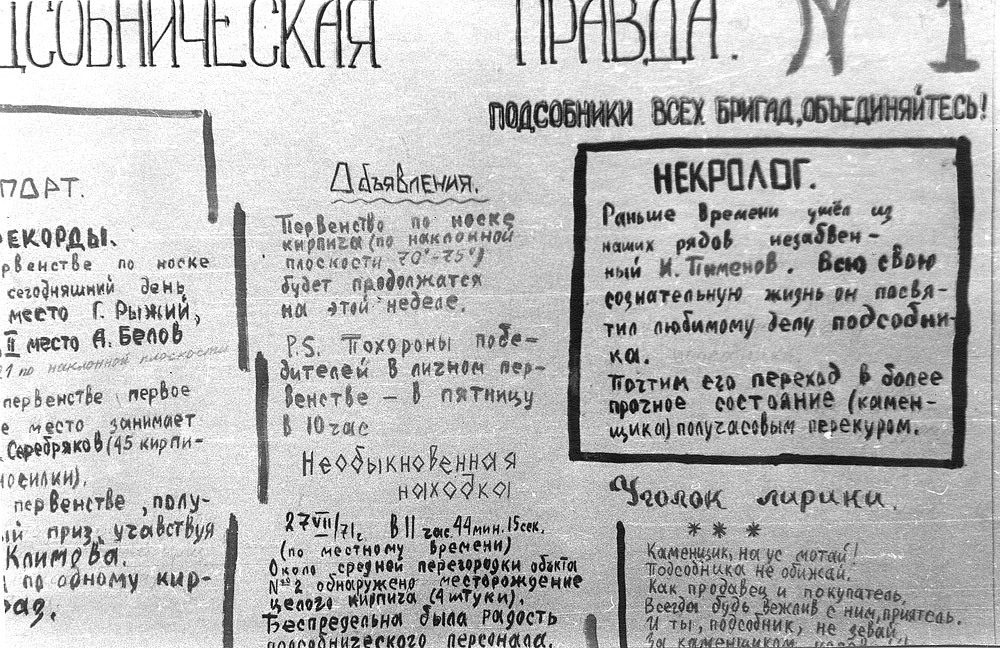 ДСОБНИЧЕСКАЯ ПРАВДА. №1
ПОДСОБНИКИ ВСЕХ БРИГАД, ОБЪЕДИНЯЙТЕСЬ!
ПОРТ.
ЕКОРДЫ.
рвенстве по носке
сегодняшний день
место Г. Рыжий,
II место А. Белов
по наклонной плоскости
первенстве первое
е место занимает
Серебряков (45 кирпи-
носилки).
первенстве, полу-
ый приз, учавствуя
Климова.
по одному кир-
Объявления.
Первенство по носке
кирпича (по наклонной
плоскости 70°-75°)
будет продолжатся
на этой неделе.
P.S. Похороны побе-
дителей в личном пер-
венстве – в пятницу
в 10 час
Необыкновенная
находка
27 VII/71г. В 11 час. 44 мин. 15 сек.
(по местному времени)
Около средней перегородки объкта
№2 обнаружено месторождение
целого кирпича (4 штуки).
Беспредельна была радость
подсобнического персонала.
НЕКРОЛОГ.
Раньше времени ушёл из
наших рядов незабвен-
ный И. Пименов. Всю свою
сознательную жизнь он посвя-
тил любимому делу подсобни-
ка.
Почтим его переход в более
прочное состояние (камен-
щика) получасовым перекуром.
Уголок лирики.
* * *
Каменщик, на ус мотай!
Подсобника не обижай.
Как продавец и покупатель,
Всегда будь вежлив с ним, приятель.
И ты, подсобник, не зевай
За каменщиком